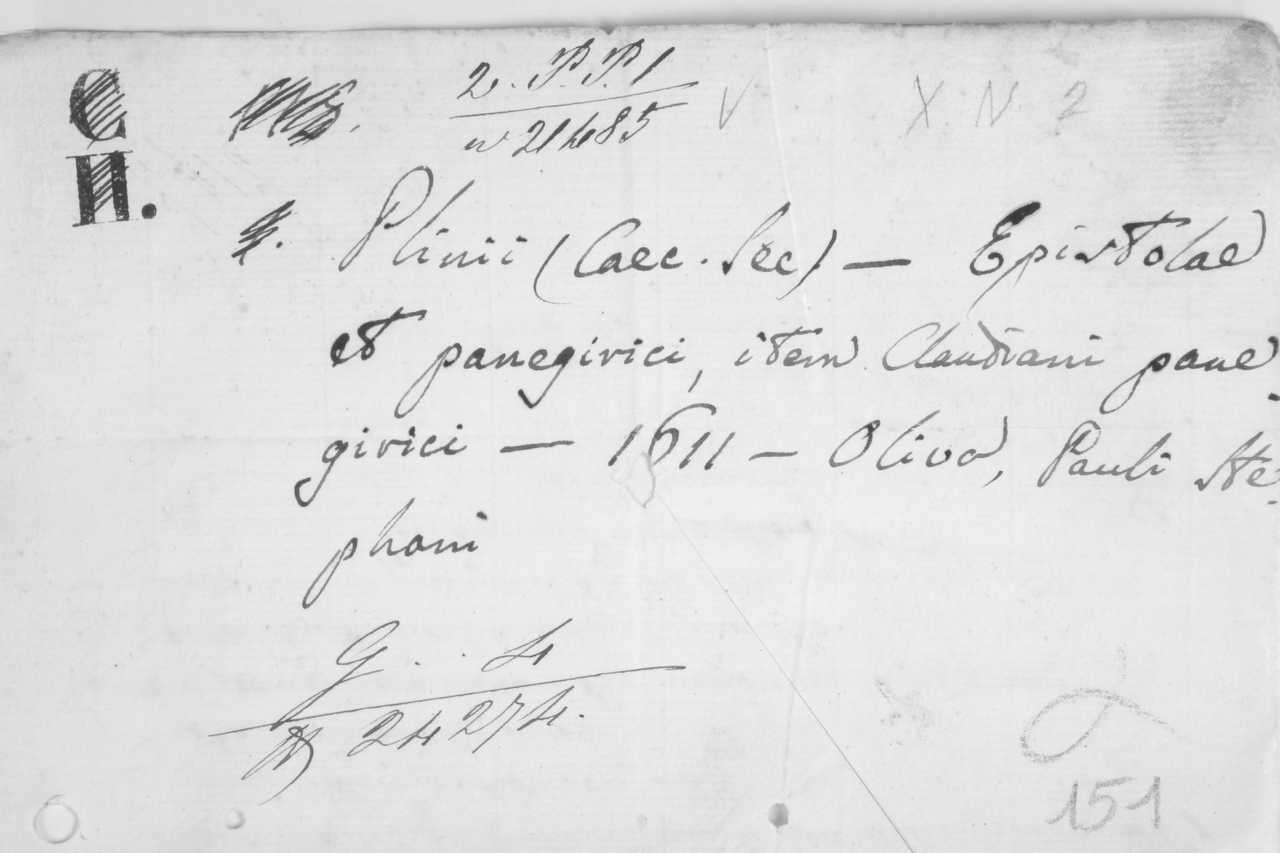 C
II.
2. P. P. 1
n 21485
V
X. N. 2
4. Plinii (Caec. Sec) — Epistolae
et panegirici, item Claudiani pane-
girici — 1611 — Oliva, Pauli Ste-
phani
G . . 4
N 24274.
151